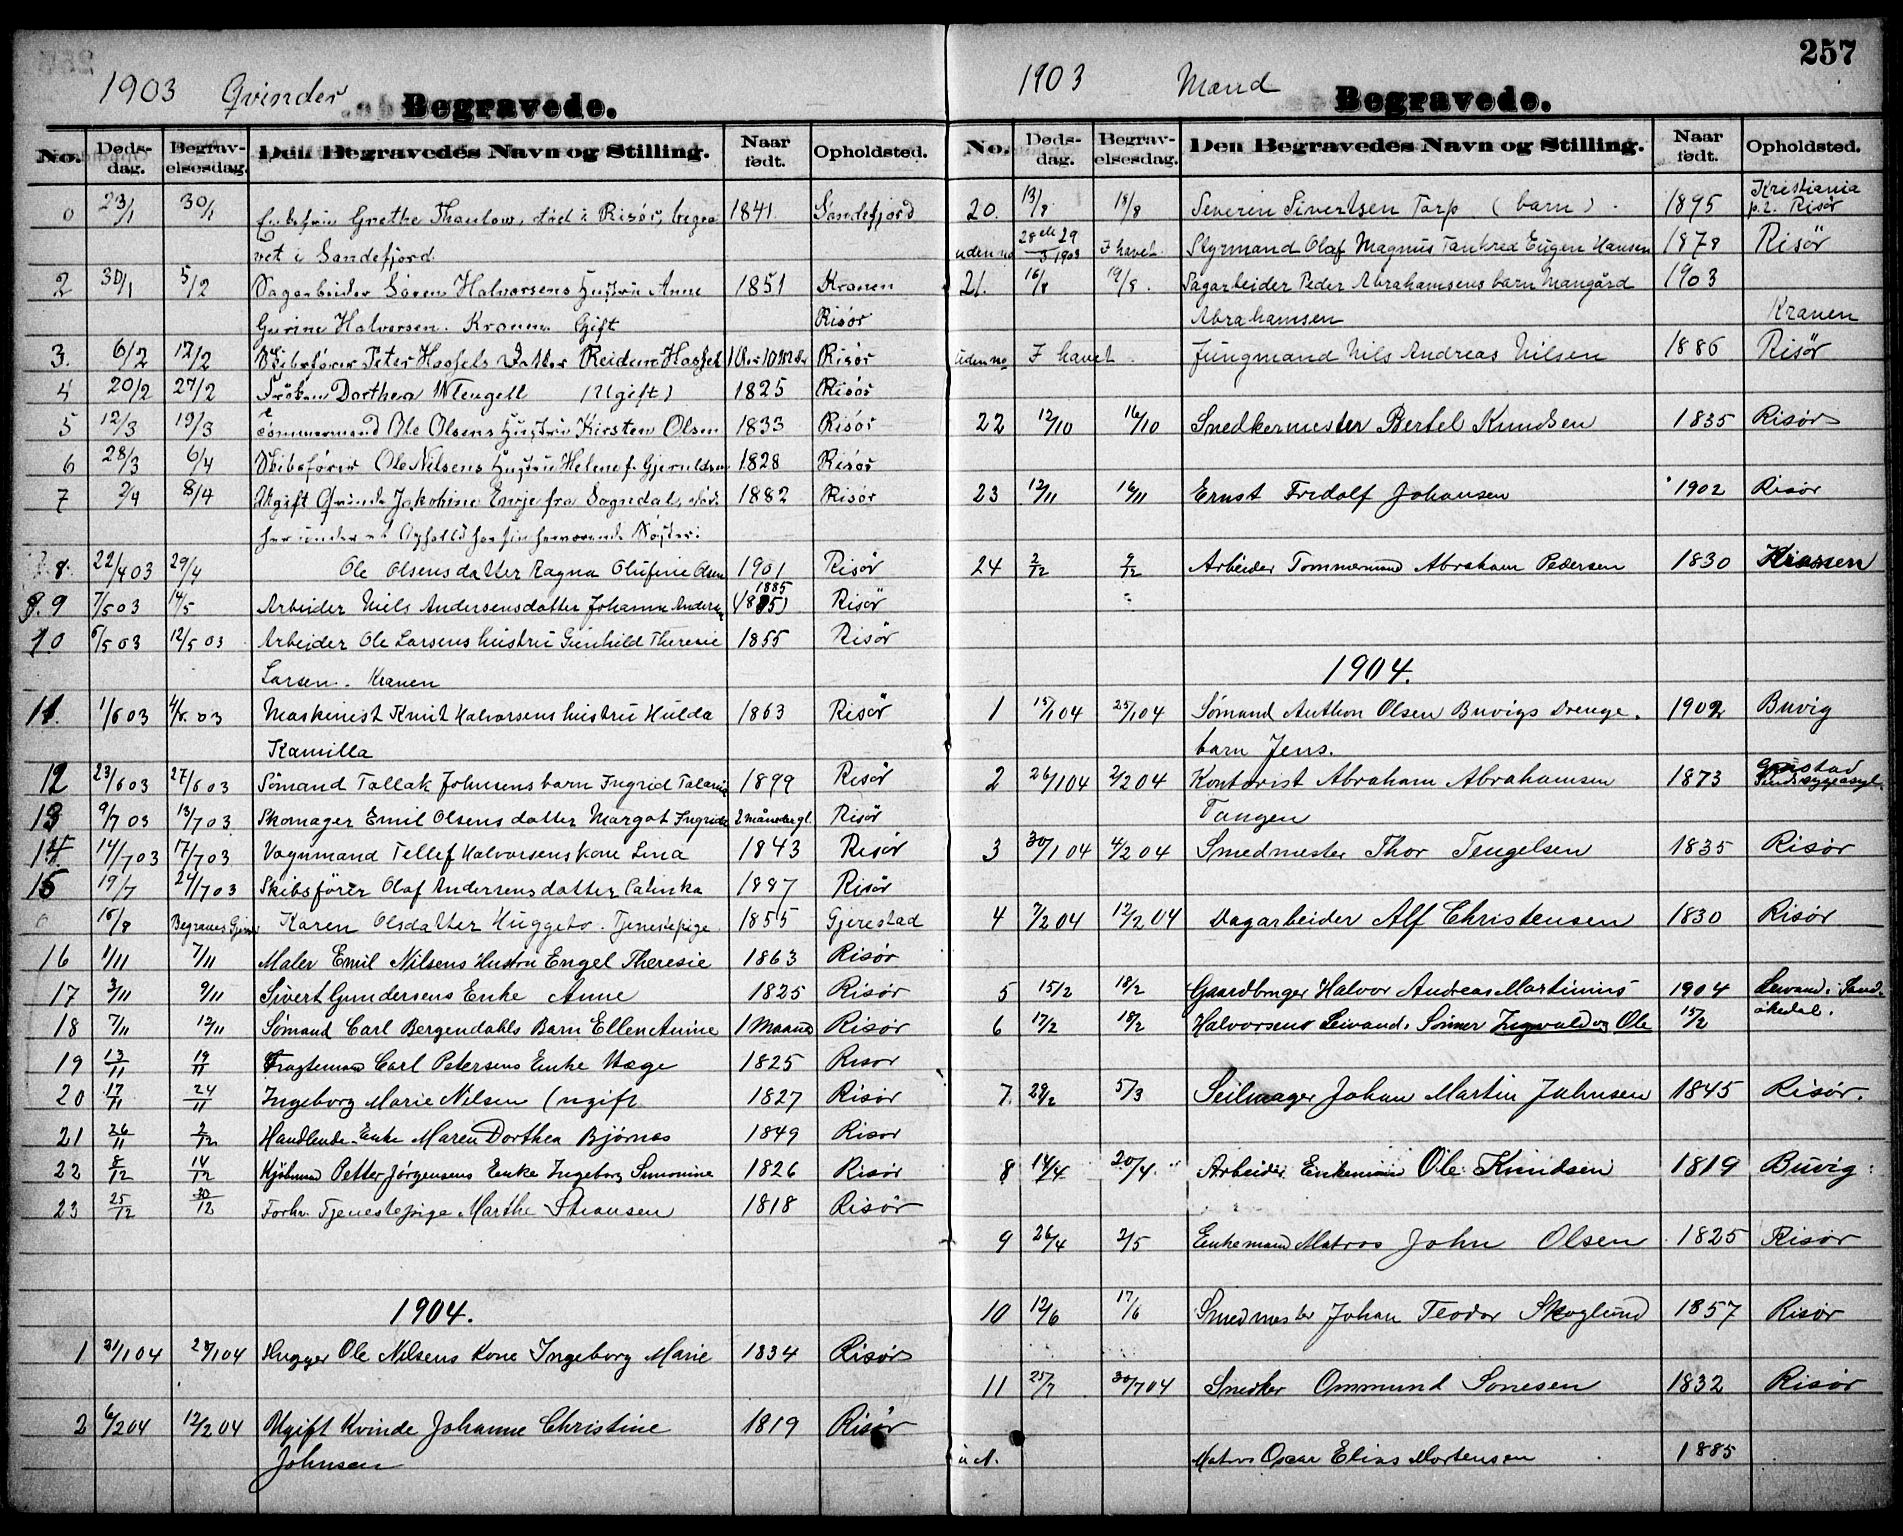 257
1903 Qvinder
Begravede.
No. Døds-dag. Begrav-elsesdag. Den Begravedes Navn og Stilling. Naar født. Opholdsted.
0 23/1 30/1 Enkefrue Grethe Thaulow, død i Risör, begra 1841 Sandefjord
vet i Sandefjord.
2 30/1 5/2 Sagarbeider Søren Halvorsens Hustru Anne 1851 Kranen
Gurine Halvorsen. Kranen. Gift Risör
3. 6/2 12/2 Skibsfører Peter Hassels Datter Reidun Hassel Risör
4 20/2 27/2 Frøken Dorthea Tengell (Ugift) 1825 Risör
5 12/3 19/3 Tømmermand Ole Olsens Hustru Kirsten Olsen 1833 Risör
6 28/3 6/4 Skibsfører Ole Nilsens Hustru Helene f. Gjeruldsen 1828 Risör
7 2/4 8/4 Ugift Qvinde Jakobine fra Sogndal, død 1882 Risör
her under et Ophold hos sin herværende Søster.
8. 22/4 03 29/4 Ole Olsens datter Ragna Olufine Olsen 1901 Risör
9 7/5 03 14/5 Arbeider Niels Andersens datter Johanne Andersen 1885 Risör
10 6/5 03 12/5 03 Arbeider Ole Larsens hustru Gunhild Theresie 1855 Risör
Larsen. Kranen
11. 1/6 03 4/6. 03 Maskinist Knut Halvorsens hustru Hulda 1863 Risör
Kamilla
12 23/6 03 27/6 03 Sömand Tallak Johnsens barn Ingrid 1899 Risör
13 9/7 03 13/7 03 Skomager Emil Olsens datter Margot Ingrida 2 måneder gl. Risör
14 14/7 03 17/7 03 Vognmand Tellef Halvorsens kone Lina 1843 Risör
15 19/7 24/7 03 Skibsfører Olaf Andersens datter Catinka 1887 Risör
0 15/8 Begraves Karen Olsdatter Huggeto. Tjenestepige 1855 Gjerestad
16 1/11 7/11 Maler Emil Nilsens Hustru Engel Theresie 1863 Risør
17 3/11 9/11 Sivert Gundersens Enke Anne 1825 Risør
18 7/11 12/11 Sømand Carl Bergendahls Barn Ellen Anine 1 Maaned Risør
19 13/11 19/11 Fragtemand Carl Petersens Enke Hæge 1825 Risør
20 17/11 24/11 Ingeborg Marie Nilsen (ugift 1827 Risör
21 26/11 2/12 Handlende-Enke Maren Dorthea Bjørnås 1849 Risør
22 8/12 14/12 Petter Jørgensens Enke Ingeborg Simonine 1826 Risør
23 25/12 30/12 Forhv. Tjenestepige Marthe 1818 Risør
1904.
1 21/1 04 28/1 04 Hugger Ole Nilsens Kone Ingeborg Marie 1834 Risør
2 6/2 04 12/2 04 Ugift Kvinde Johanne Christine 1819 Risør
Johnsen
1903 Mænd
Begravede.
No. Døds-dag. Begrav-elsesdag. Den Begravedes Navn og Stilling. Naar født. Opholdsted.
20. 13/8 18/8 Severin Sivertsen Tarp (barn). 1895 Kristiania p.t. Risör
uden no 28 de 29/3 1903 I havet. Styrmand Olaf Magnus Tankred Eugen Hansen 1878 Risör
21. 16/8 19/8. Sagarbeider Peder Abrahamsens barn Mangård 1903
Abrahamsen Kranen
uden no I havet. Jungmand Nils Andreas Nilsen 1886 Risör
22 12/10 16/10 Snedkermester Bertel Knudsen 1835 Risør
23 12/11 16/11 Ernst Fredolf Johansen 1902 Risør
24 2/12 9/12 Arbeider Tømmermand Abraham Pedersen 1830 Kranen
1904.
1 15/1 04 25/1 04 Sømand Anthon Olsen Buvigs Drenge- 1902 Buvig
barn Jens.
2 26/1 04 2/2 04 Kontorist Abraham Abrahamsen 1873 Gaustad Sindssygeasyl.
Tangen
3 30/1 04 4/2 04 Smedmester Thor Tengelsen 1835 Risør
4 7/2 04 12/2 04 Dagarbeider Alf Christensen 1830 Risør
5 15/2 18/2 Gaardbruger Halvor Andreas Martinius 1904 Livand i Sønd-
6 17/2 18/2 Halvorsens Livand. Sønner Ingvald og Ole 15/2 økedal.
7. 29/2 5/3 Seilmager Johan Martin Johnsen 1845 Risør.
8 14/4 20/4 Arbeider Enkemand Ole Knudsen 1819 Buvig
9 26/4 2/5 Enkemand Matros John Olsen 1825 Risør
10 12/6 17/6 Smedmester Johan Teodor Skoglund 1857 Risør
11 25/7 30/7 04 Snedker Ommund Sonesen 1832 Risør
u.N. Matros Oscar Elias Mortensen 1885